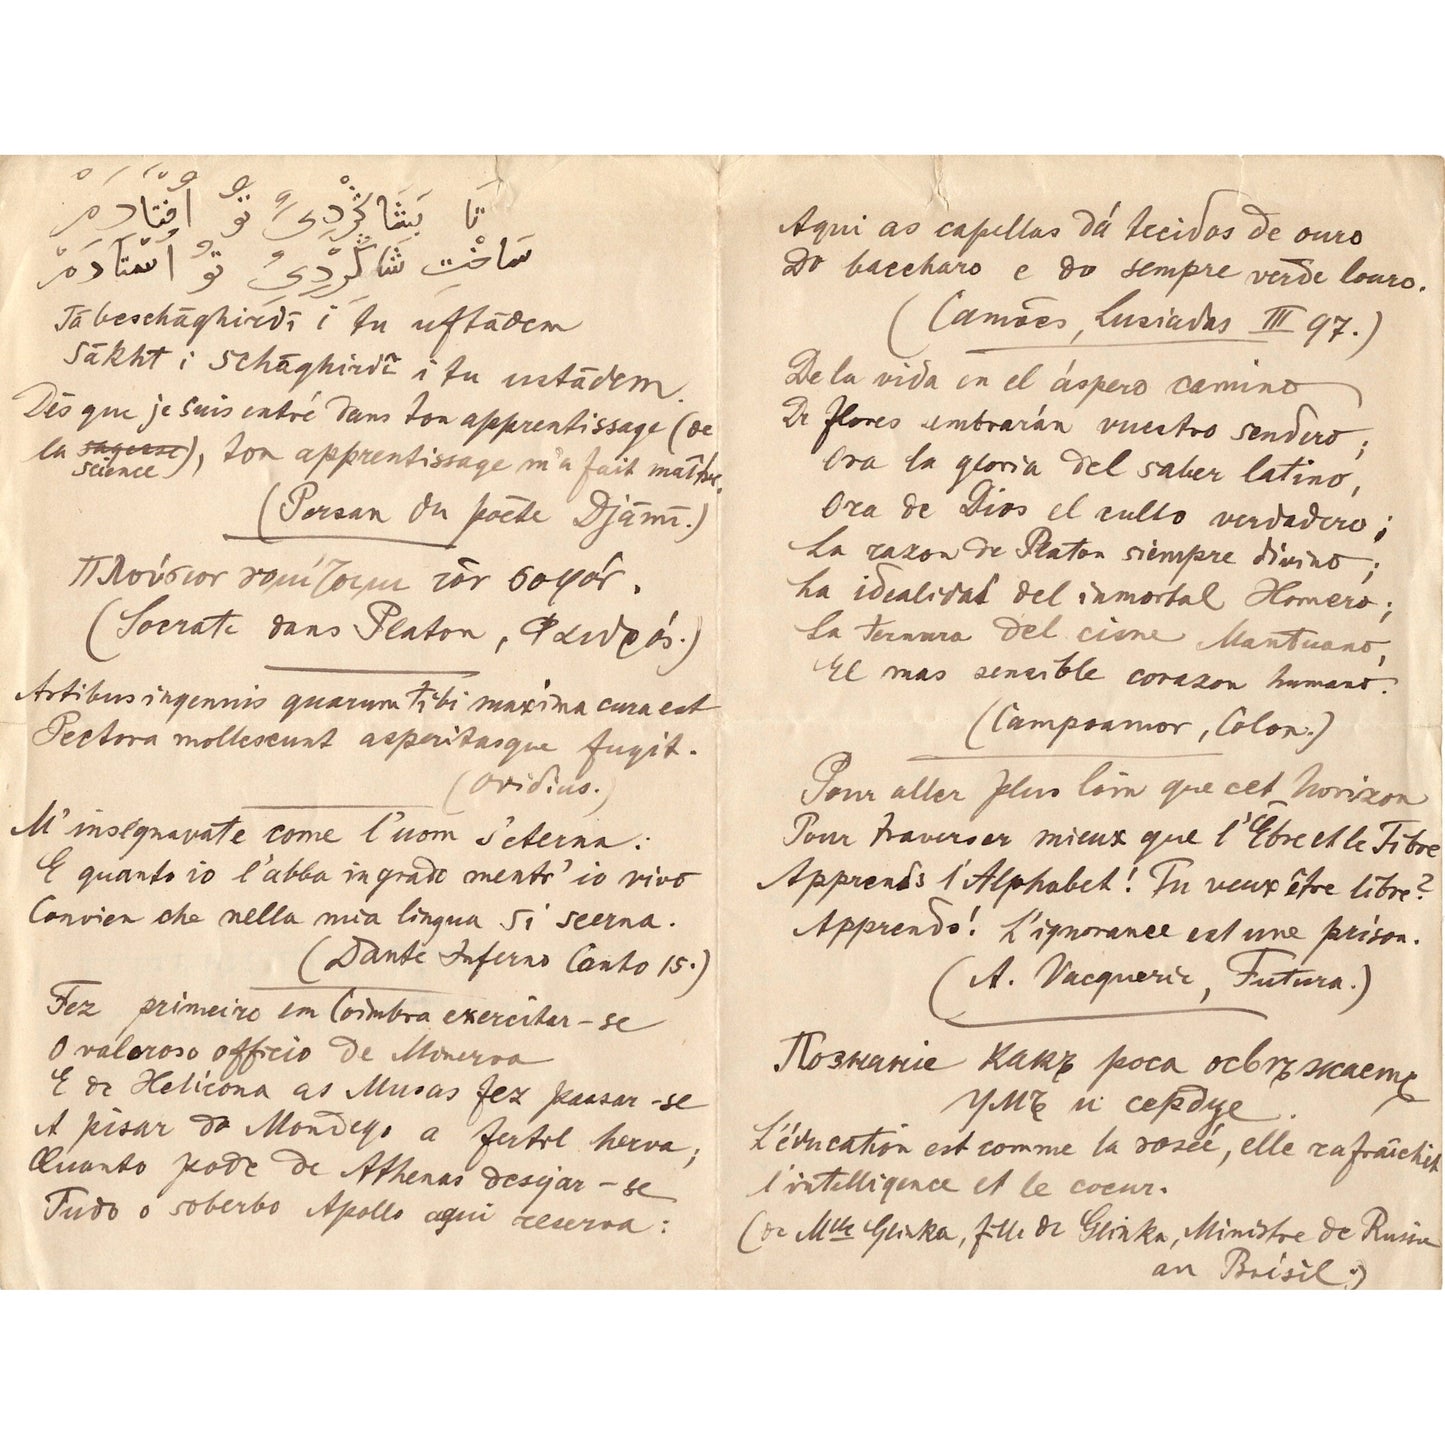 تَا بَشَاگِرْدِیِ تُو اُفْتَادَمْ
سَاخْتِ شَاگِرْدِیِ تُو اُسْتَادَمْ
Tā beschāghirdī i tu uftādem
Sākht i schāghirdī i tu ustādem.
Dès que je suis entré dans ton apprentissage (de
la sagesse science), ton apprentissage m'a fait maître.
(Persan du poëte Djāmī.)
Πλούσιον νομίζοιμι τὸν σοφόν.
(Socrate dans Platon, Φαιδρός.)
Artibus ingenuis quarum tibi maxima cura est
Pectora mollescunt asperitasque fugit.
(Ovidius.)
M'insegnavate come l'uom s'eterna:
E quanto io l'abba in grado mentr' io vivo
Convien che nella mia lingua si scerna.
(Dante Inferno Canto 15.)
Fez primeiro em Coimbra exercitar-se
O valeroso officio de Minerva
E de Helicona as Musas fez passar-se
A pisar do Mondego a fertil herva;
Quanto pode de Athenas desejar-se
Tudo o soberbo Apollo aqui reserva:
Aqui as capellas dá tecidas de ouro
Do baccharo e do sempre verde louro.
(Camões, Lusiadas III 97.)
De la vida en el áspero camino
De flores sembrarán vuestro sendero;
Ora la gloria del saber latino,
Ora de Dios el culto verdadero;
La razon de Platon siempre divino;
La idealidad del inmortal Homero;
La ternura del cisne Mantuano,
El mas sensible corazon humano.
(Campoamor, Colon.)
Pour aller plus loin que cet horizon
Pour traverser mieux que l'Èbre et le Tibre
Apprends l'Alphabet! Tu veux être libre?
Apprends! L'ignorance est une prison.
(A. Vacquerie, Futura.)
Познаніе какъ роса освѣжаетъ
умъ и сердце.
L'éducation est comme la rosée, elle rafraîchit
l'intelligence et le coeur.
(de Mlle Glinka, fille de Glinka, Ministre de Russie
au Brésil.)